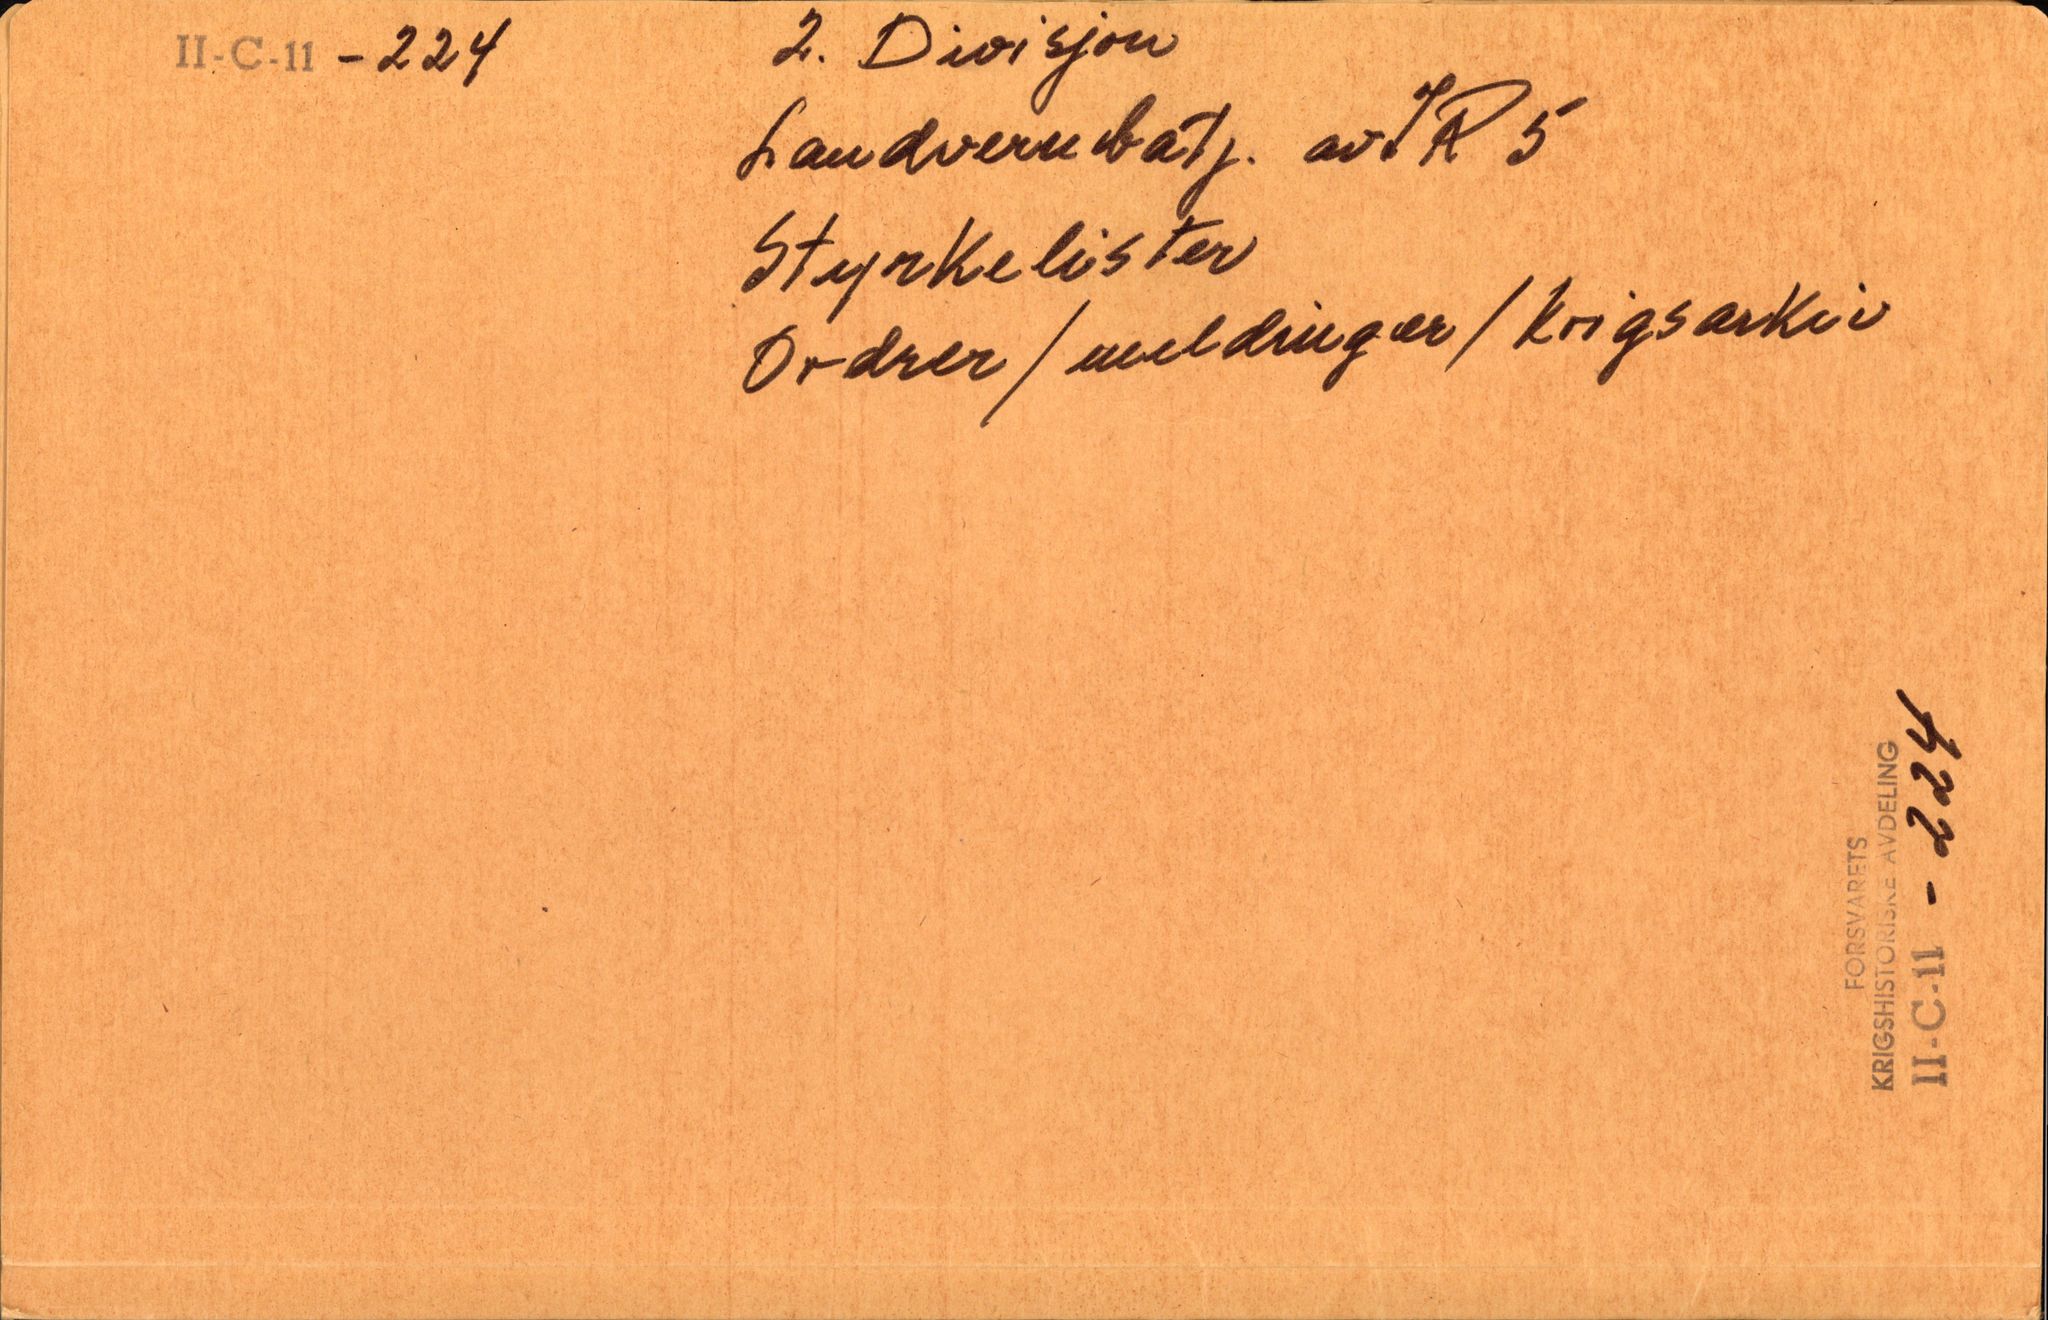 II-C-11 - 224
2. Divisjon
Landvernbatj. av IR 5
Styrkelister
Ordrer / meldinger / krigsarkiv
FORSVARETS
KRIGSHISTORISKE AVDELING
II-C-11 - 224